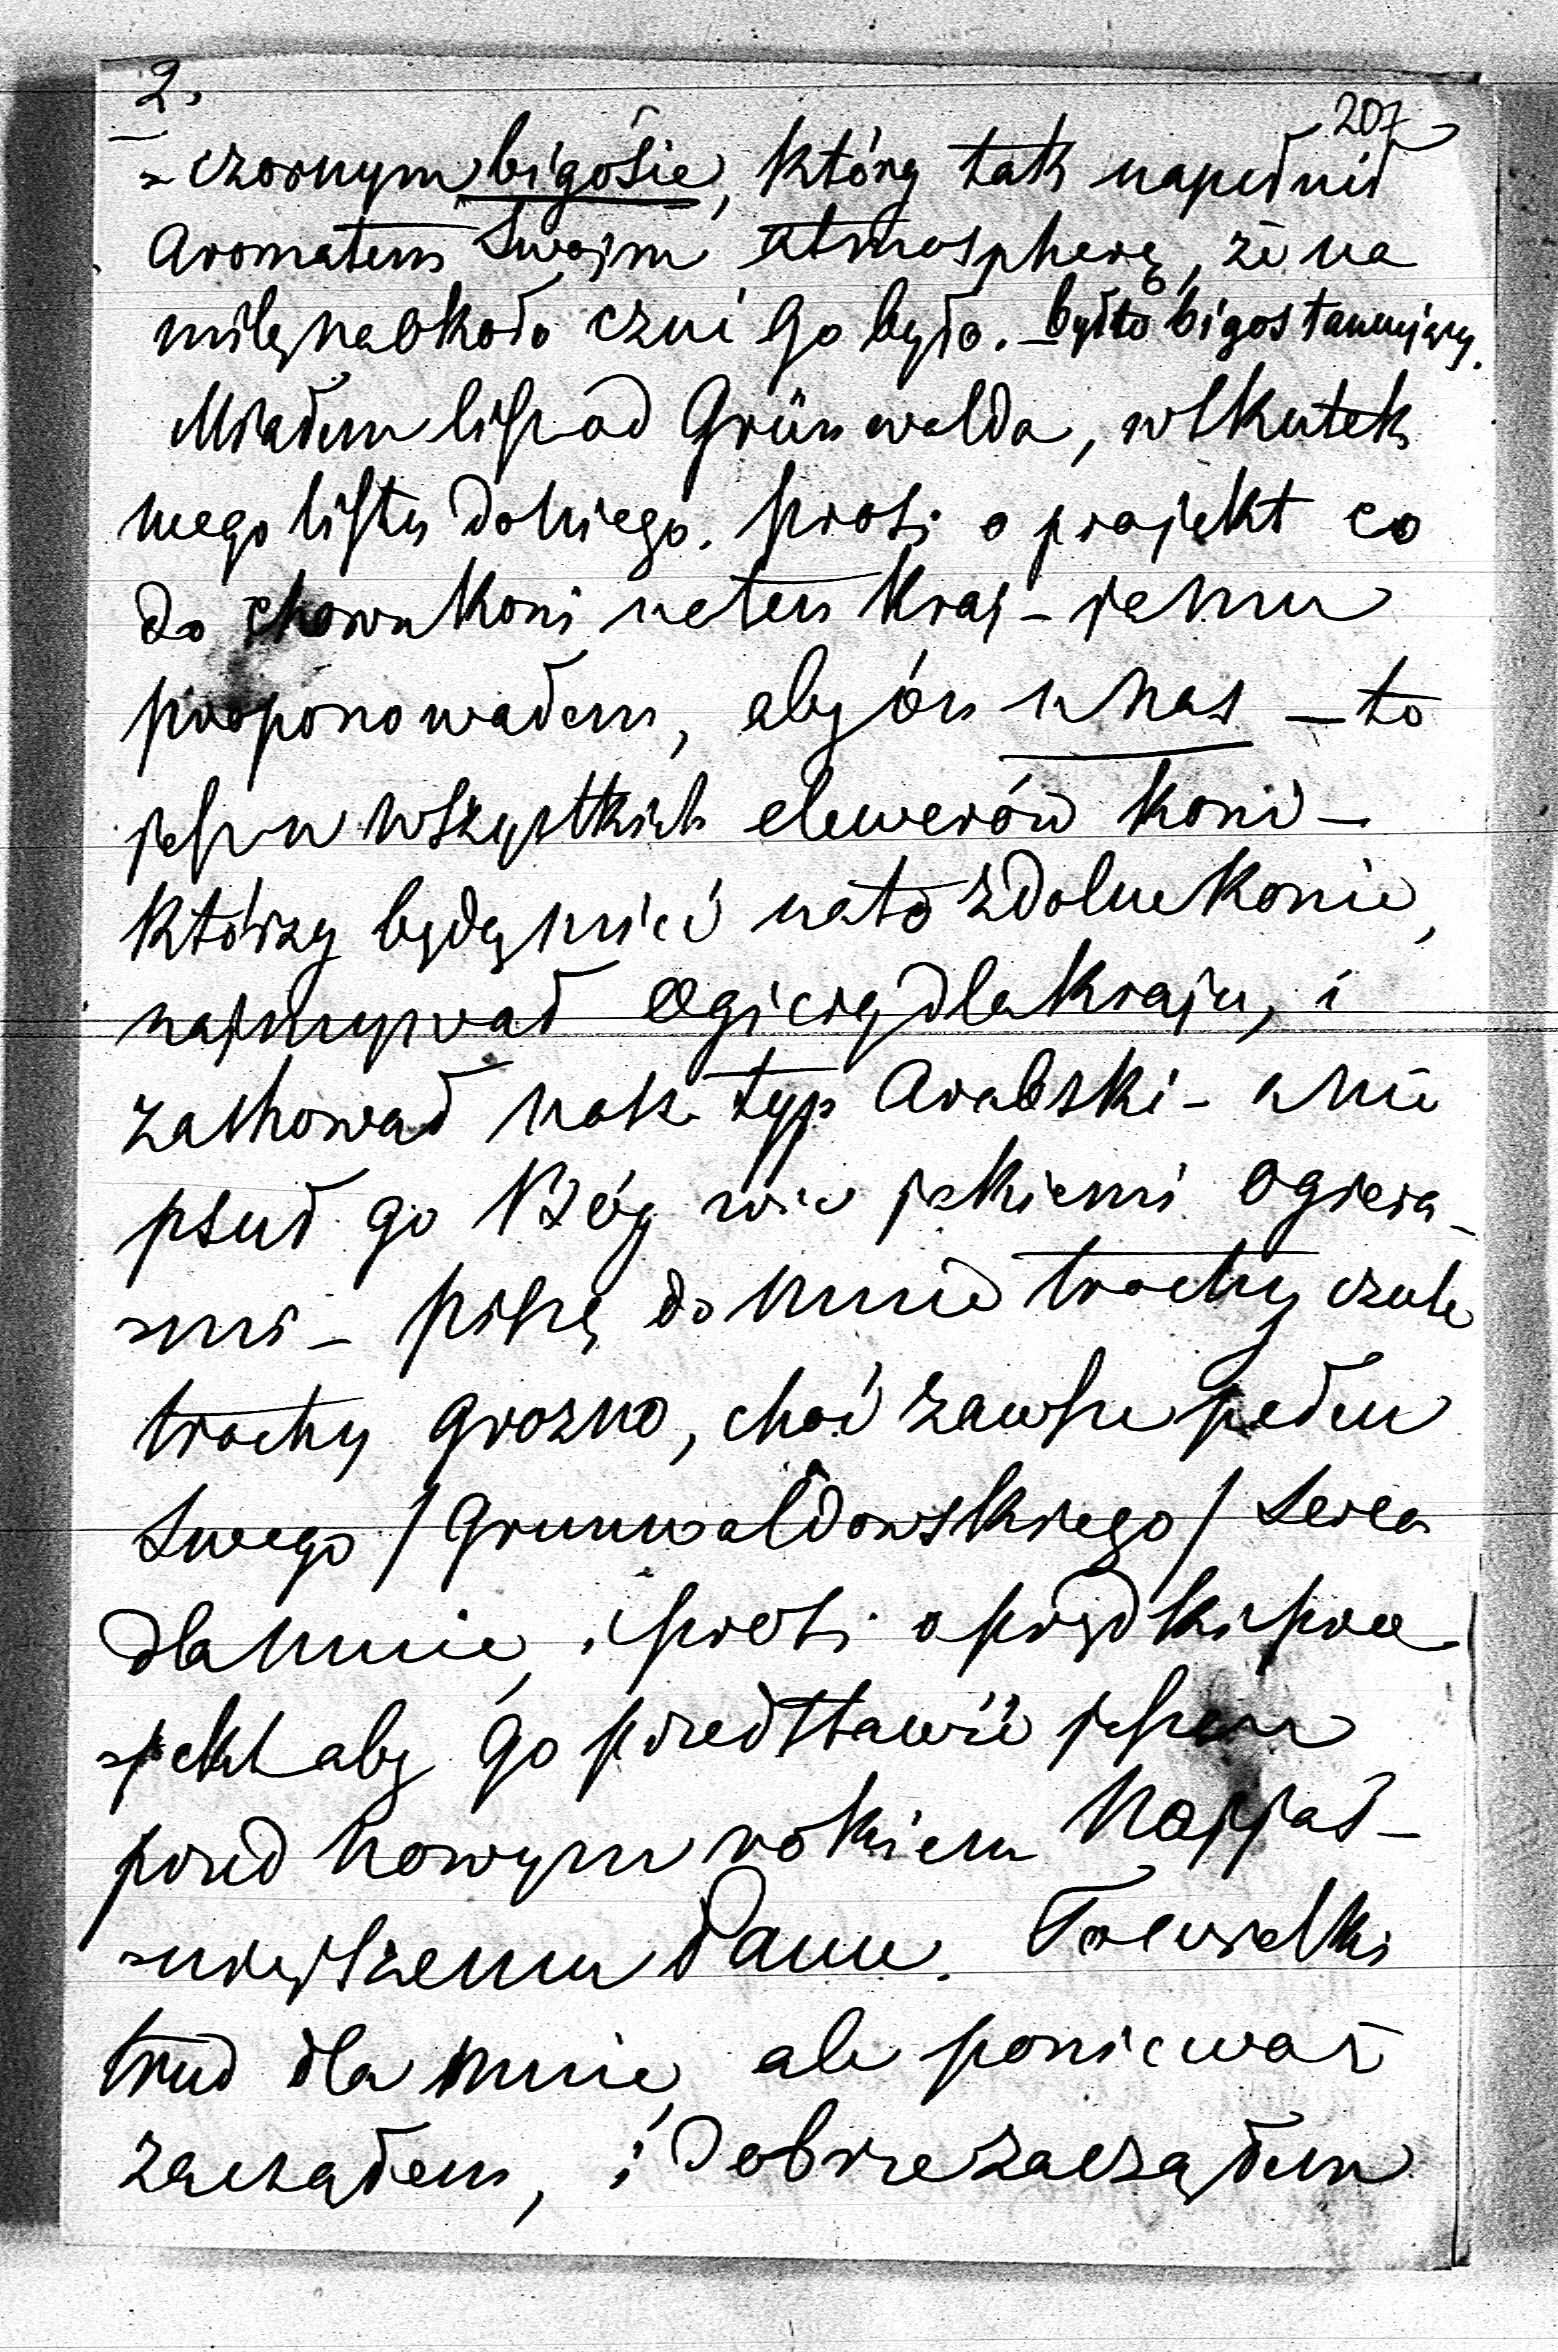 2.
207
-czornym bigosie, który tak napełnił
Aromatem Swojm atmospherę, że na
milę naokoło czuć go było. – był to bigos tannujący.
Miałem list od Grünwalda, wskutek
mego listu do niego. prosi o projekt co
do chowu koni na ten kraj – ja mu
proponowałem, aby ón u nas – to
jest u wszystkich elewerów koni –
którzy będą mieć na to zdolne konie,
najmywał Ogiery dla kraju, i
zachował nasz typ Arabski – a nie
psuł go Bóg wie jakiemi Ogiera-
-mi – piszę do mnie trochę czule
trochę grozno, choć zawsze pełen
Swego / Grunwaldowskiego / Serca
dla mnie, i prosi o prędki pro-
-jekt aby go przedstawić jeszcze
przed nowym rokiem Najjaś-
-niejszemu Panu. To wielki
trud dla mnie, ale ponieważ
zacząłem, i dobrze zacząłem